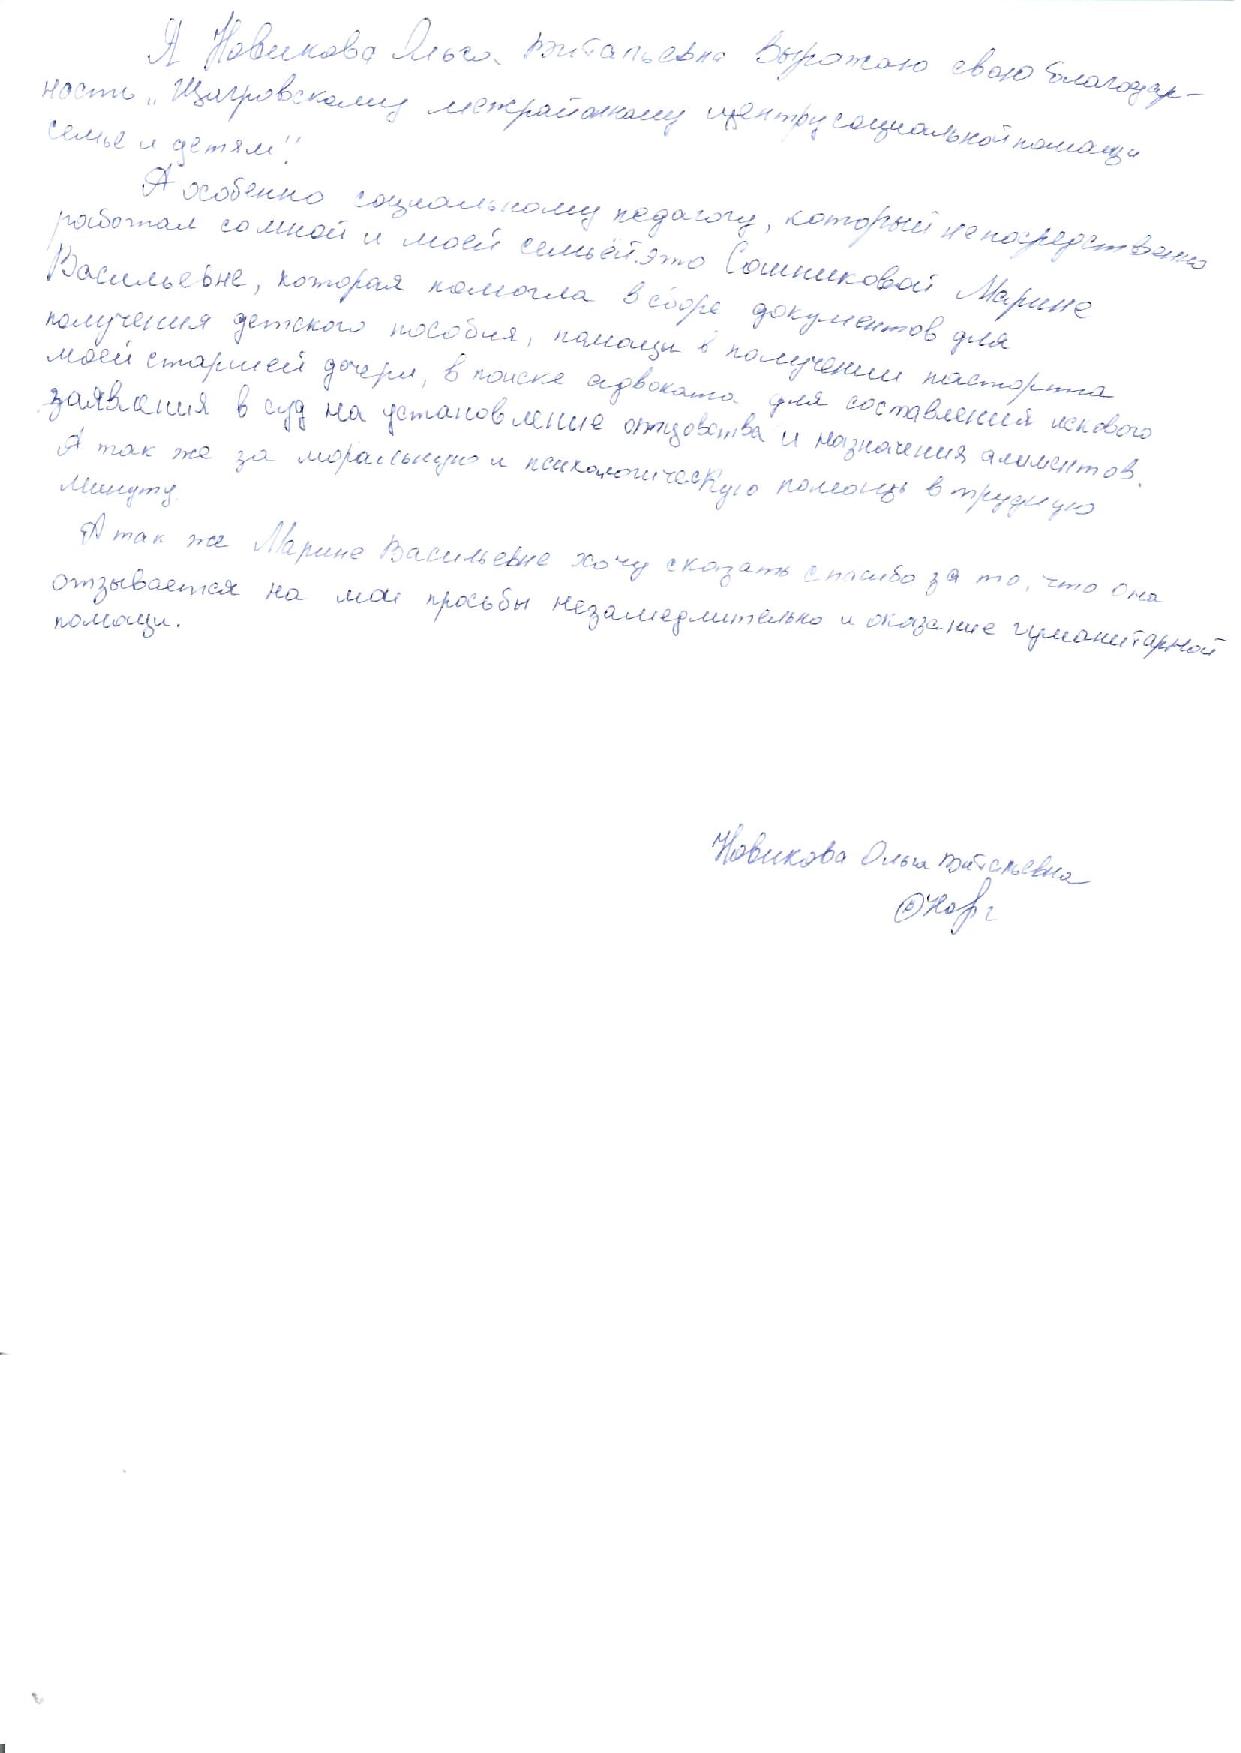 Я Новикова Ольга Витальевна Выражаю свою благодар-
ность „Щигровскому межрайонному центру социальной помощи
семье и детям".
А особенно социальному педагогу, который непосредственно
работал со мной и моей семьёй это Сошниковой Марине
Васильевне, которая помогла в сборе документов для
получения детского пособия, помощи в получении паспорта
моей старшей дочери, в поиске адвоката для составления искового
заявления в суд на установление отцовства и назначения алиментов.
А так же за моральную и психологическую помощь в трудную
минуту.
А так же Марине Васильевне хочу сказать спасибо за то, что она
отзывается на мои просьбы незамедлительно и оказание гуманитарной
помощи.
Новикова Ольга Витальевна